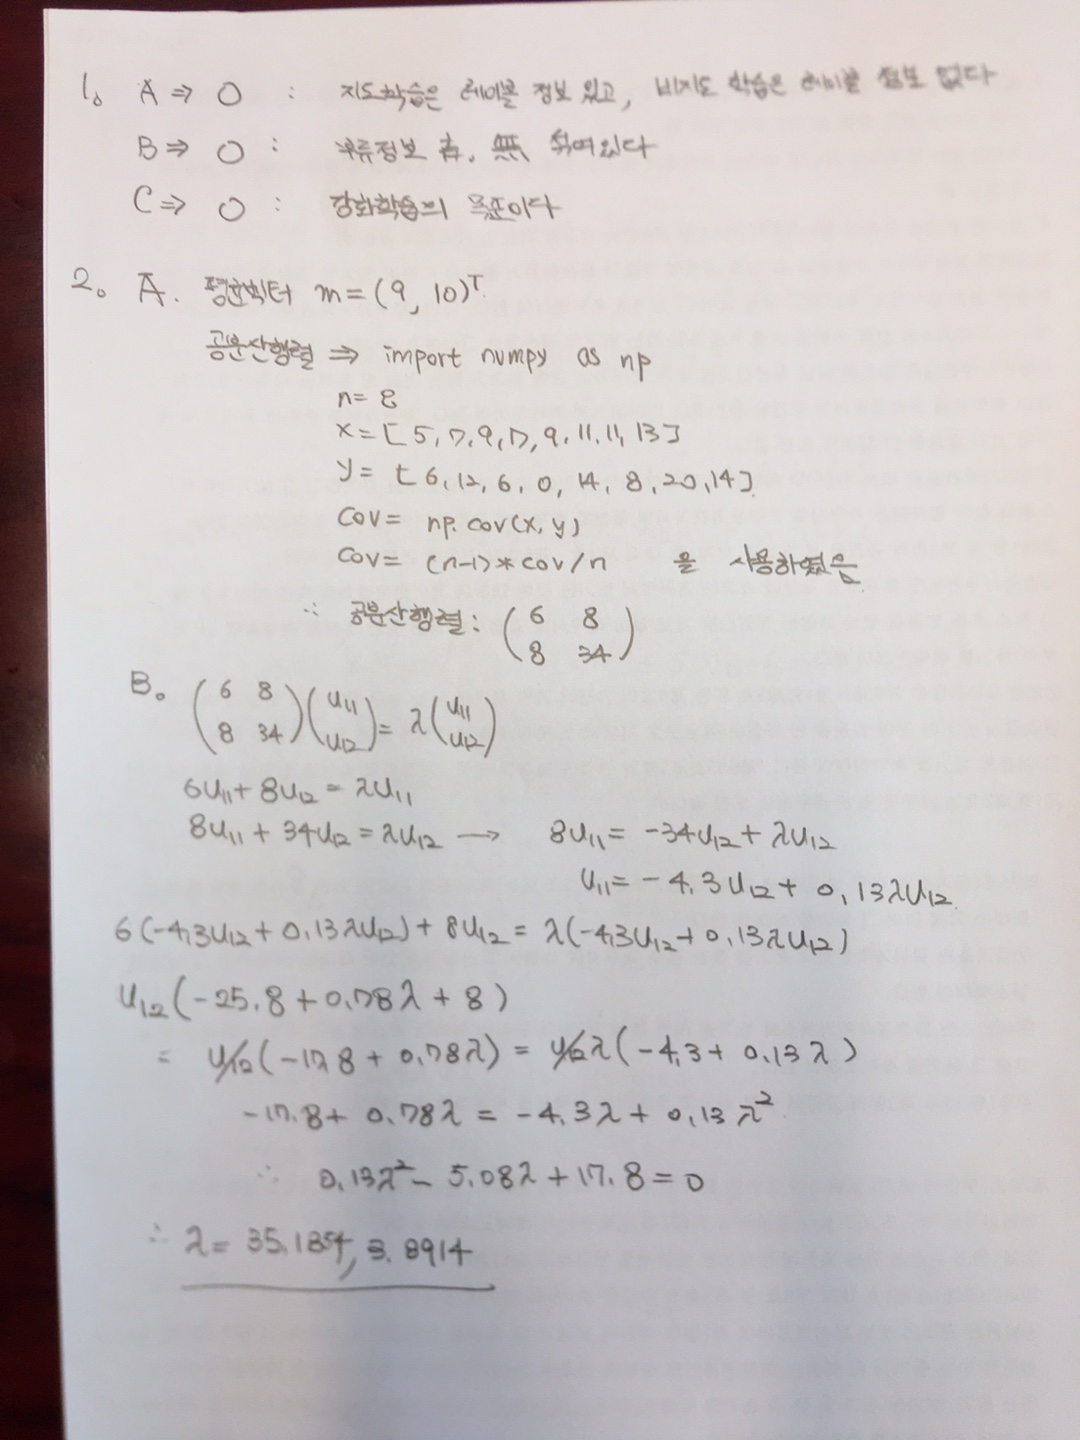 1. A ⇒ O : 지도학습은 레이블 정보 있고, 비지도 학습은 레이블 정보 없다
B ⇒ O : 부류정보 有, 無 섞여있다
C ⇒ O : 강화학습의 목표이다
2. A. 평균벡터 m = (9, 10)ᵀ.
공분산행렬 ⇒ import numpy as np
n = 8
x = [5, 7, 9, 7, 9, 11, 11, 13]
y = [6, 12, 6, 0, 14, 8, 20, 14]
cov = np.cov(x, y)
cov = (n-1)*cov/n 을 사용하였음
∴ 공분산행렬 : (6 8
8 34)
B. (6 8
8 34)(u11
u12) = λ(u11
u12)
6u11 + 8u12 = λu11
8u11 + 34u12 = λu12 → 8u11 = -34u12 + λu12
u11 = -4.3u12 + 0.13λu12
6(-4.3u12 + 0.13λu12) + 8u12 = λ(-4.3u12 + 0.13λu12)
u12(-25.8 + 0.78λ + 8)
= u12(-17.8 + 0.78λ) = u12λ(-4.3 + 0.13λ)
-17.8 + 0.78λ = -4.3λ + 0.13λ²
∴ 0.13λ² - 5.08λ + 17.8 = 0
∴ λ = 35.1854, 3.8914